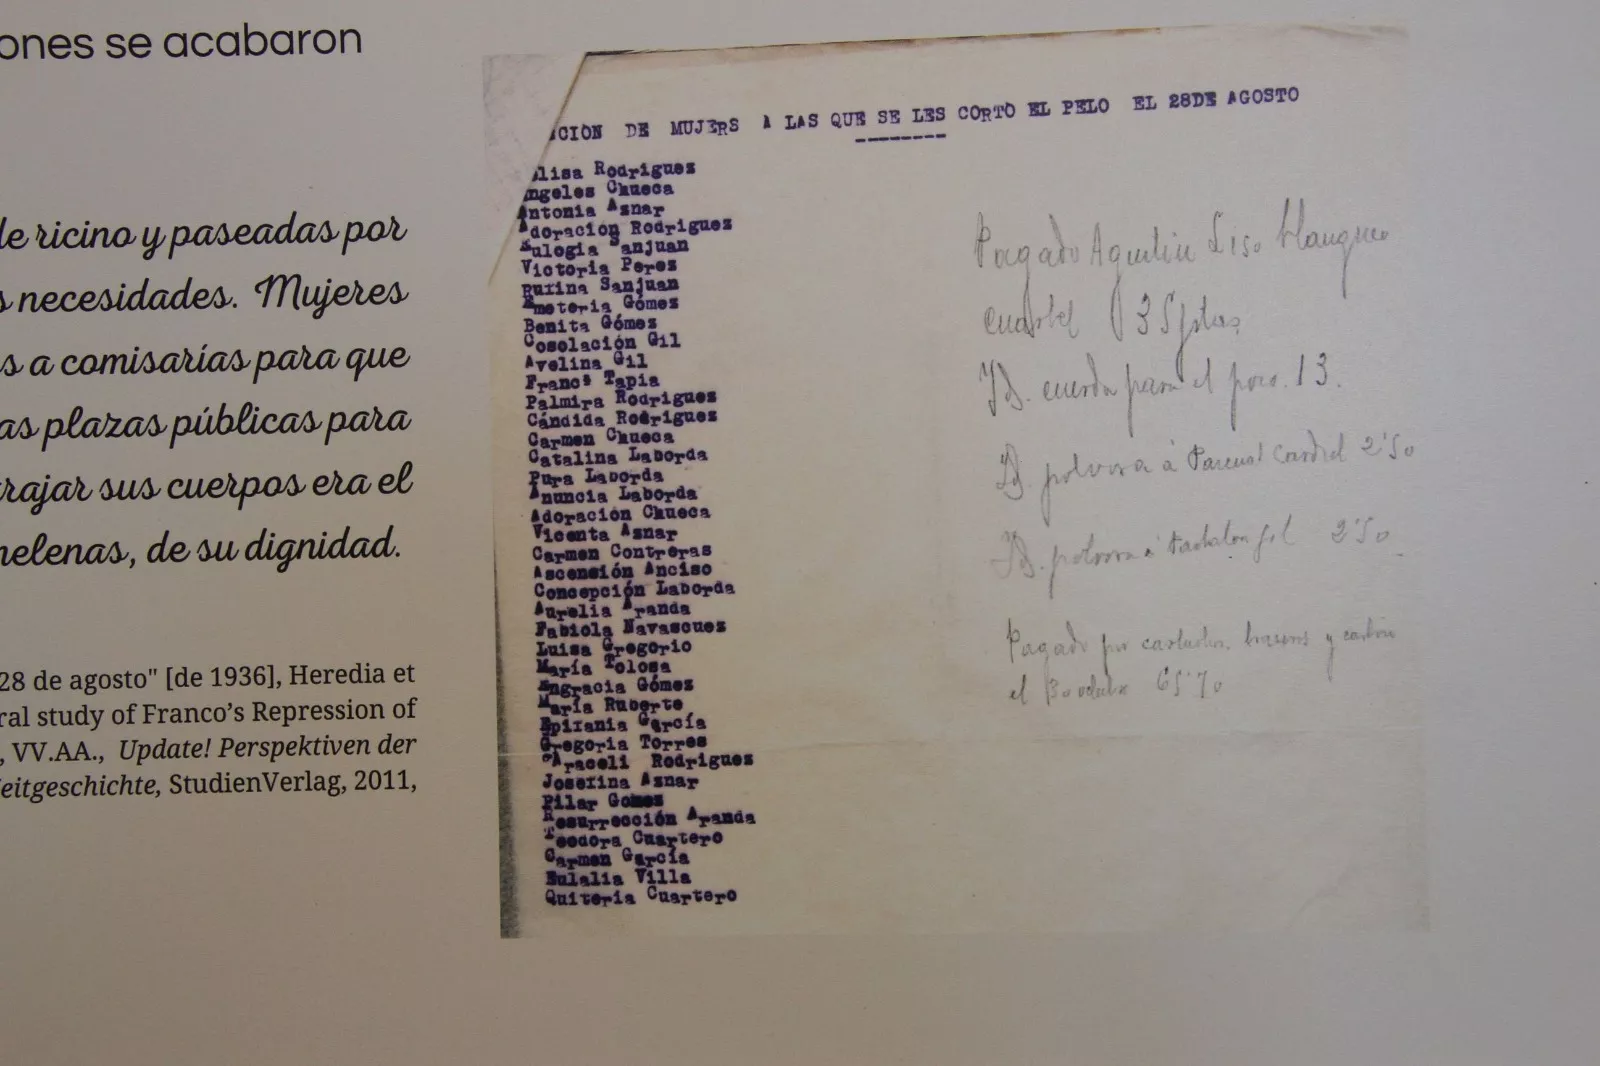 ones se acabaron
de ricino y paseadas por
s necesidades. Mujeres
s a comisarías para que
as plazas públicas para
rajar sus cuerpos era el
melenas, de su dignidad.
28 de agosto" [de 1936], Heredia et
ral study of Franco's Repression of
, VV.AA., Update! Perspektiven der
Zeitgeschichte, StudienVerlag, 2011,
CIÓN DE MUJERS A LAS QUE SE LES CORTÓ EL PELO EL 28DE AGOSTO
lisa Rodrigues
ngeles Chueca
Antonia Aznar
Adoración Rodrigues
Eulogia Sanjuan
Victoria Peres
Purina Sanjuan
Emeteria Gómes
Benita Gómes
Cosolación Gil
Avelina Gil
Francs Tapia
Palmira Rodrigues
Cándida Rodrigues
Carmen Chueca
Catalina Laborda
Pura Laborda
Anuncia Laborda
Adoración Chueca
Vicenta Asnar
Carmen Contreras
Ascensión Anciso
Concepción Laborda
Aurelia Aranda
Fabiola Navascues
Luisa Gregorio
María Tolosa
Engracia Gómes
María Ruberte
Epifania García
Gregoria Torres
Araceli Rodrigues
Josefina Asnar
Pilar Gomes
Resurrección Aranda
Teodora Cuartero
Carmen García
Eulalia Villa
Quiteria Cuartero
Pagado Agustin Liso blanqueo
cuartel 35 ptas
Id. cuerda para el pozo. 13.
Id. polvora á Pascual 2'50
Id. polvora á 2'50
Pagado por y carbon
el 30 65'70